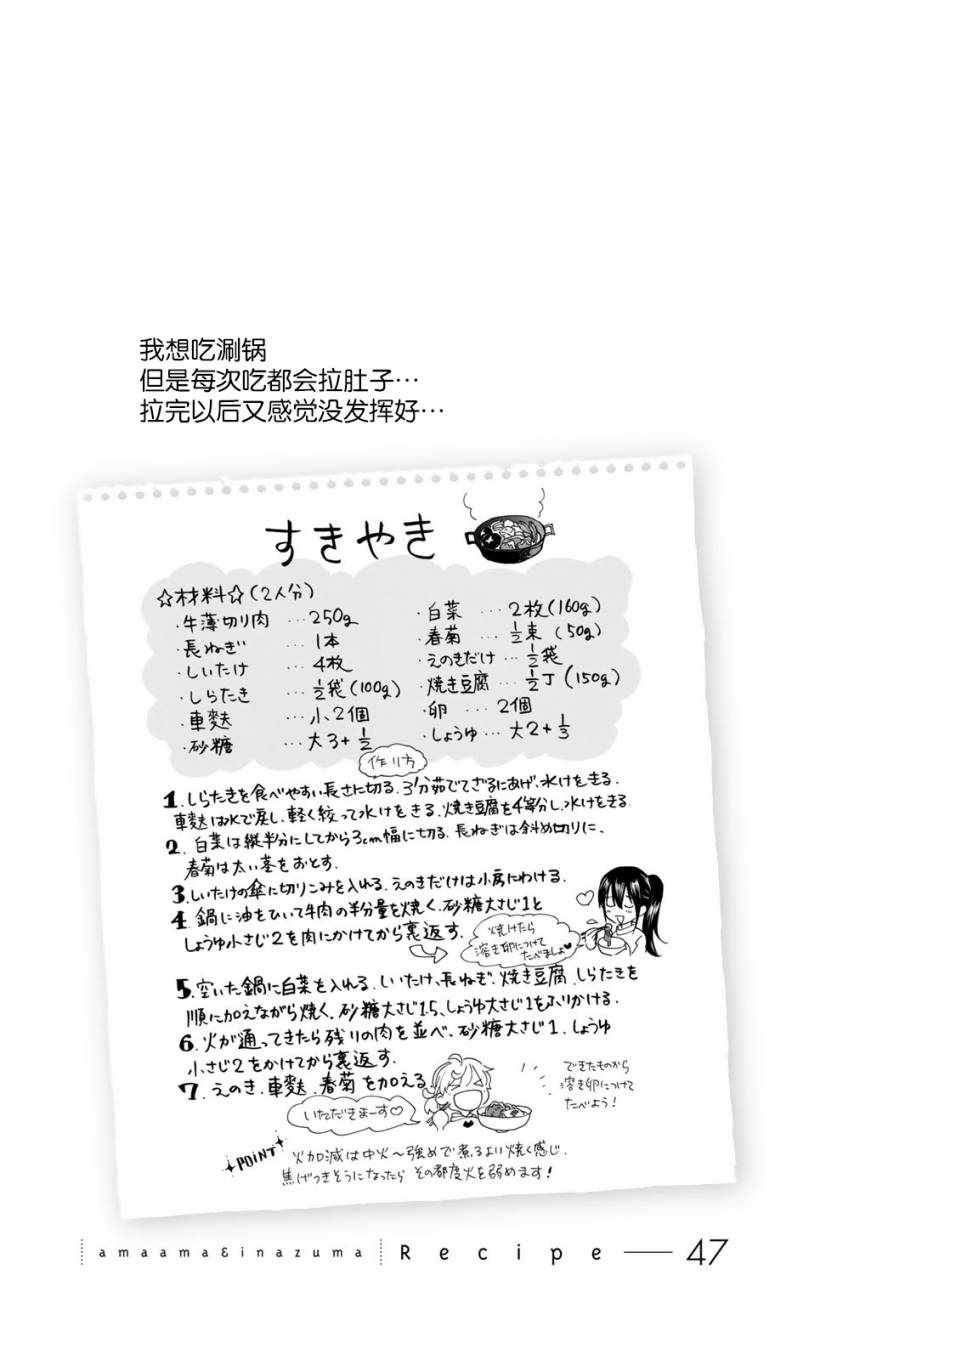 我想吃涮锅
但是每次吃都会拉肚子…
拉完以后又感觉没发挥好…
すきやき
☆材料☆(2人分)
・牛薄切り肉 …250g
・長ねぎ …1本
・しいたけ …4枚
・しらたき …½袋(100g)
・車麩 …小2個
・砂糖 …大3+½
・白菜 …2枚(160g)
・春菊 …½束(50g)
・えのきだけ…½袋
・焼き豆腐…½丁(150g)
・卵 …2個
・しょうゆ…大2+⅓
作り方
1.しらたきを食べやすい長さに切る.3分茹でてざるにあげ,水けをきる.
車麩は水で戻し,軽く絞って水けをきる.焼き豆腐を4等分し,水けをきる.
2.白菜は縦半分にしてから3cm幅に切る.長ねぎは斜め切りに,
春菊は太い茎をおとす.
3.しいたけの傘に切りこみを入れる.えのきだけは小房にわける.
4.鍋に油をひいて牛肉の半分量を焼く.砂糖大さじ1と
しょうゆ小さじ2を肉にかけてから裏返す.
焼けたら
溶き卵につけて
たべましょ♥
5.空いた鍋に白菜を入れる.しいたけ,長ねぎ,焼き豆腐,しらたきを
順に加えながら焼く.砂糖大さじ1.5,しょうゆ大さじ1をふりかける.
6.火が通ってきたら残りの肉を並べ,砂糖大さじ1,しょうゆ
小さじ2をかけてから裏返す.
7.えのき,車麩,春菊を加える
いただきまーす♡
できたものから
溶き卵につけて
たべよう!
POINT
火加減は中火〜強めで煮るより焼く感じ.
焦げつきそうになったら その都度火を弱めます!
amaama&inazuma Recipe 47